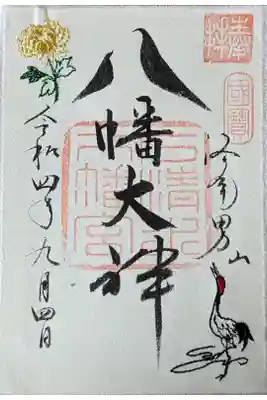 奉拝
國寶
洛南男山
八幡大神
石清水
八幡宮
令和四年九月四日